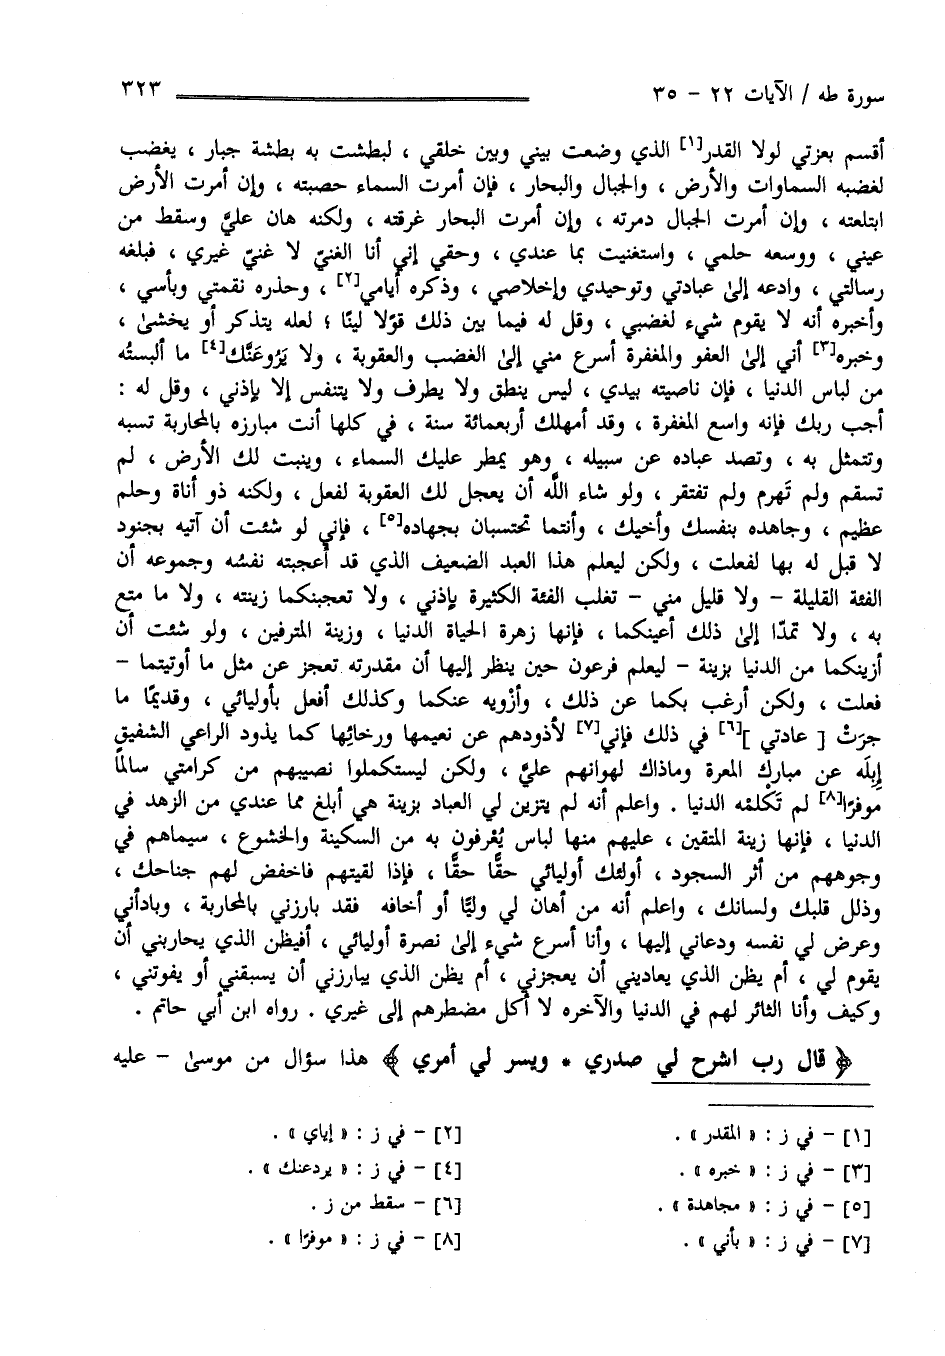 سورة طه / الآيات ٢٢ - ٣٥
٣٢٣
أقسم بعزتي لولا القدر[١] الذي وضعت بيني وبين خلقي ، لبطشت به بطشة جبار ، يغضب
لغضبه السماوات والأرض ، والجبال والبحار ، فإن أمرت السماء حصبته ، وإن أمرت الأرض
ابتلعته ، وإن أمرت الجبال دمرته ، وإن أمرت البحار غرقته ، ولكنه هان عليَّ وسقط من
عيني ، ووسعه حلمي ، واستغنيت بما عندي ، وحقي إني أنا الغنيّ لا غنيّ غيري ، فبلغه
رسالتي ، وادعه إلىٰ عبادتي وتوحيدي وإخلاصي ، وذكره أيامي[٢] ، وحذره نقمتي وبأسي ،
وأخبره أنه لا يقوم شيء لغضبي ، وقل له فيما بين ذلك قوًلا لينًا ؛ لعله يتذكر أو يخشىٰ ،
وخبره[٣] أني إلىٰ العفو والمغفرة أسرع مني إلىٰ الغضب والعقوبة ، ولا يَرُوعَنَّك[٤] ما ألبستُه
من لباس الدنيا ، فإن ناصيته بيدي ، ليس ينطق ولا يطرف ولا يتنفس إلا بإذني ، وقل له :
أجب ربك فإنه واسع المغفرة ، وقد أمهلك أربعمائة سنة ، في كلها أنت مبارزه بالمحاربة تسبه
وتتمثل به ، وتصد عباده عن سبيله ، وهو يمطر عليك السماء ، وينبت لك الأرض ، لم
تسقم ولم تَهرم ولم تفتقر ، ولو شاء اللَّه أن يعجل لك العقوبة لفعل ، ولكنه ذو أناة وحلم
عظيم ، وجاهده بنفسك وأخيك ، وأنتما تحتسبان بجهاده[٥] ، فإني لو شئت أن آتيه بجنود
لا قبل له بها لفعلت ، ولكن ليعلم هذا العبد الضعيف الذي قد أعجبته نفسُه وجموعه أن
الفئة القليلة - ولا قليل مني - تغلب الفئة الكثيرة بإذني ، ولا تعجبنكما زينته ، ولا ما متع
به ، ولا تمدّا إلىٰ ذلك أعينكما ، فإنها زهرة الحياة الدنيا ، وزينة المترفين ، ولو شئت أن
أزينكما من الدنيا بزينة - ليعلم فرعون حين ينظر إليها أن مقدرته تعجز عن مثل ما أوتيتما -
فعلت ، ولكن أرغب بكما عن ذلك ، وأزْويه عنكما وكذلك أفعل بأوليائي ، وقديمًا ما
جرَتْ [ عادتي ][٦] في ذلك فإني[٧] لأذودهم عن نعيمها ورخائِها كما يذود الراعي الشفيق
إبِلَه عن مبارك المعرة وماذاك لهوانهم عليَّ ، ولكن ليستكملوا نصيبهم من كرامتي سالماً
موفرًا[٨] لم تَكْلمْه الدنيا . واعلم أنه لم يتزين لي العباد بزينة هي أبلغ مما عندي من الزهد في
الدنيا ، فإنها زينة المتقين ، عليهم منها لباس يُعْرفون به من السكينة والخشوع ، سيماهم في
وجوههم من أثر السجود ، أولئك أوليائي حقًّا حقًّا ، فإذا لقيتهم فاخفض لهم جناحك ،
وذلل قلبك ولسانك ، واعلم أنه من أهان لي وليًّا أو أخافه فقد بارزني بالمحاربة ، وبادأني
وعرض لي نفسه ودعاني إليها ، وأنا أسرع شيء إلىٰ نصرة أوليائي ، أفيظن الذي يحاربني أن
يقوم لي ، أم يظن الذي يعاديني أن يعجزني ، أم يظن الذي يبارزني أن يسبقني أو يفوتني ،
وكيف وأنا الثائر لهم في الدنيا والآخره لا أكل مضطرهم إلى غيري . رواه ابن أبي حاتم .
﴿ قال رب اشرح لي صدري * ويسر لي أمري ﴾ هذا سؤال من موسىٰ - عليه
[١] - في ز : « المقدر » .
[٢] - في ز : « إياي » .
[٣] - في ز : « خبره » .
[٤] - في ز : « يردعنك » .
[٥] - في ز : « مجاهدة » .
[٦] - سقط من ز .
[٧] - في ز : « بأني » .
[٨] - في ز : « موفرًا » .